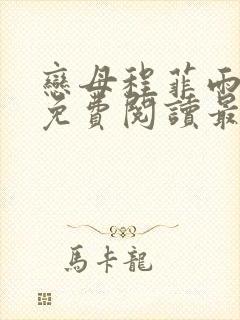 戀母程菲雨
免費閱讀最
馬卡龍